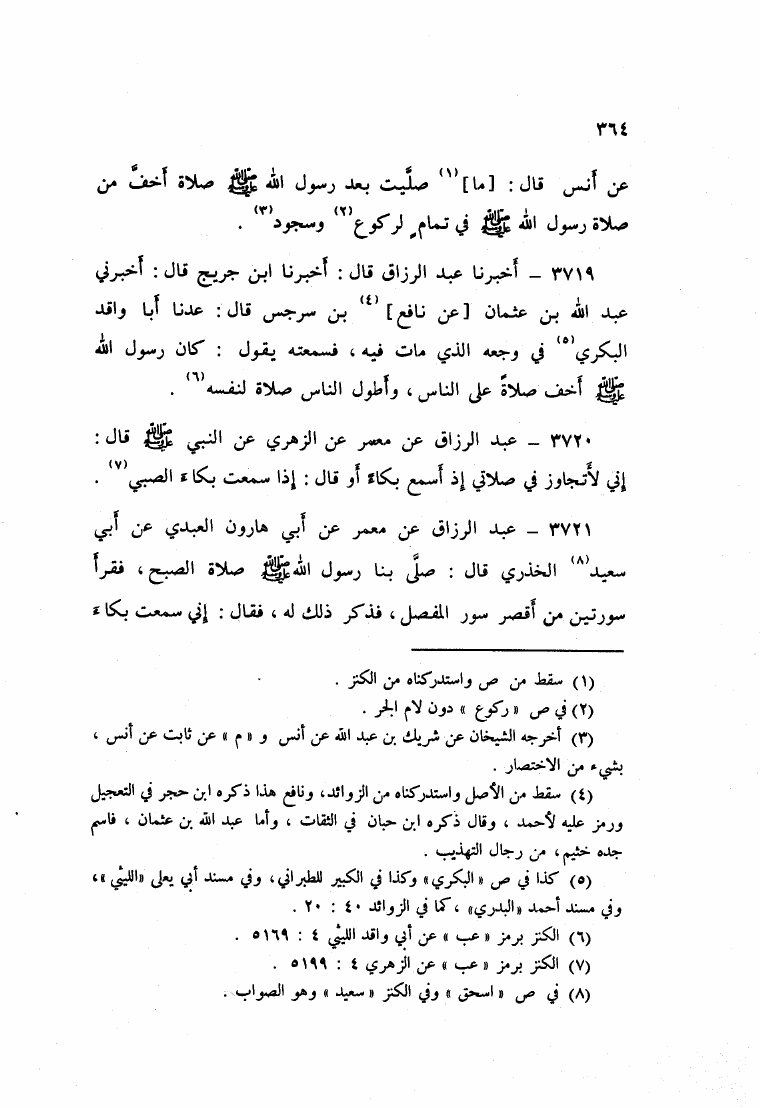 ٣٦٤
عن أنس قال : [ما](١) صلَّيت بعد رسول الله ﷺ صلاة أخفَّ من
صلاة رسول الله ﷺ في تمامٍ لركوع(٢) وسجود(٣) .
٣٧١٩ – أخبرنا عبد الرزاق قال : أخبرنا ابن جريج قال : أخبرني
عبد الله بن عثمان [عن نافع](٤) بن سرجس قال : عدنا أبا واقد
البكري(٥) في وجعه الذي مات فيه ، فسمعته يقول : كان رسول الله
ﷺ أخف صلاةً على الناس ، وأطول الناس صلاة لنفسه(٦) .
٣٧٢٠ – عبد الرزاق عن معمر عن الزهري عن النبي ﷺ قال :
إني لأتجاوز في صلاتي إذ أسمع بكاءً أو قال : إذا سمعت بكاء الصبي(٧) .
٣٧٢١ – عبد الرزاق عن معمر عن أبي هارون العبدي عن أبي
سعيد(٨) الخذري قال : صلَّى بنا رسول الله ﷺ صلاة الصبح ، فقرأ
سورتين من أقصر سور المفصل ، فذكر ذلك له ، فقال : إني سمعت بكاء
(١) سقط من ص واستدركناه من الكنز .
(٢) في ص « ركوع » دون لام الجر .
(٣) أخرجه الشيخان عن شريك بن عبد الله عن أنس و « م » عن ثابت عن أنس ،
بشيء من الاختصار .
(٤) سقط من الأصل واستدركناه من الزوائد، ونافع هذا ذكره ابن حجر في التعجيل
ورمز عليه لأحمد ، وقال ذكره ابن حبان في الثقات ، وأما عبد الله بن عثمان ، فاسم
جده خثيم ، من رجال التهذيب .
(٥) كذا في ص « البكري» وكذا في الكبير للطبراني، وفي مسند أبي يعلى «الليثي»،
وفي مسند أحمد «البدري» ، كما في الزوائد ٤٠ : ٢٠ .
(٦) الكنز برمز « عب » عن أبي واقد الليثي ٤ : ٥١٦٩ .
(٧) الكنز برمز « عب » عن الزهري ٤ : ٥١٩٩ .
(٨) في ص « اسحق » وفي الكنز « سعيد » وهو الصواب .